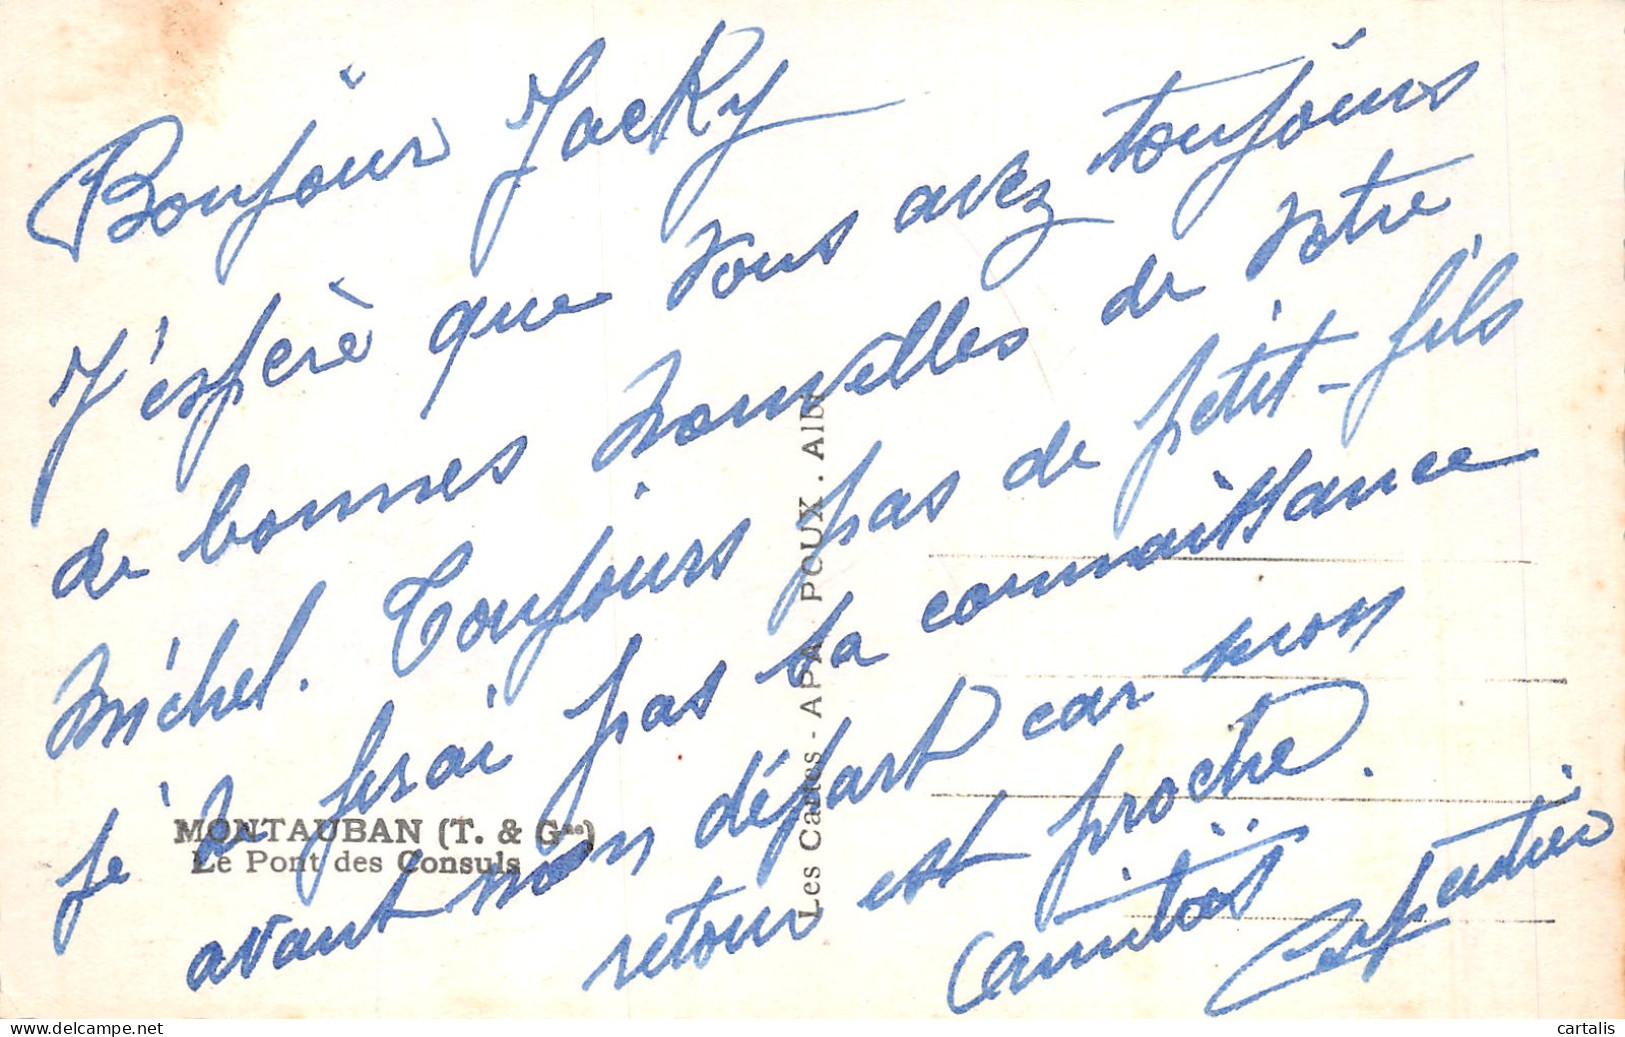 Bonjour Jacky
J'espère que vous avez toujours
de bonnes nouvelles de votre
Michel. Toujours pas de petit-fils
je ne ferai pas sa connaissance
avant mon départ car mon
retour est proche.
Amitiés
MONTAUBAN (T. & Gne)
Le Pont des Consuls
Les Cartes - APA POUX. Albi
cartalis
www.delcampe.net